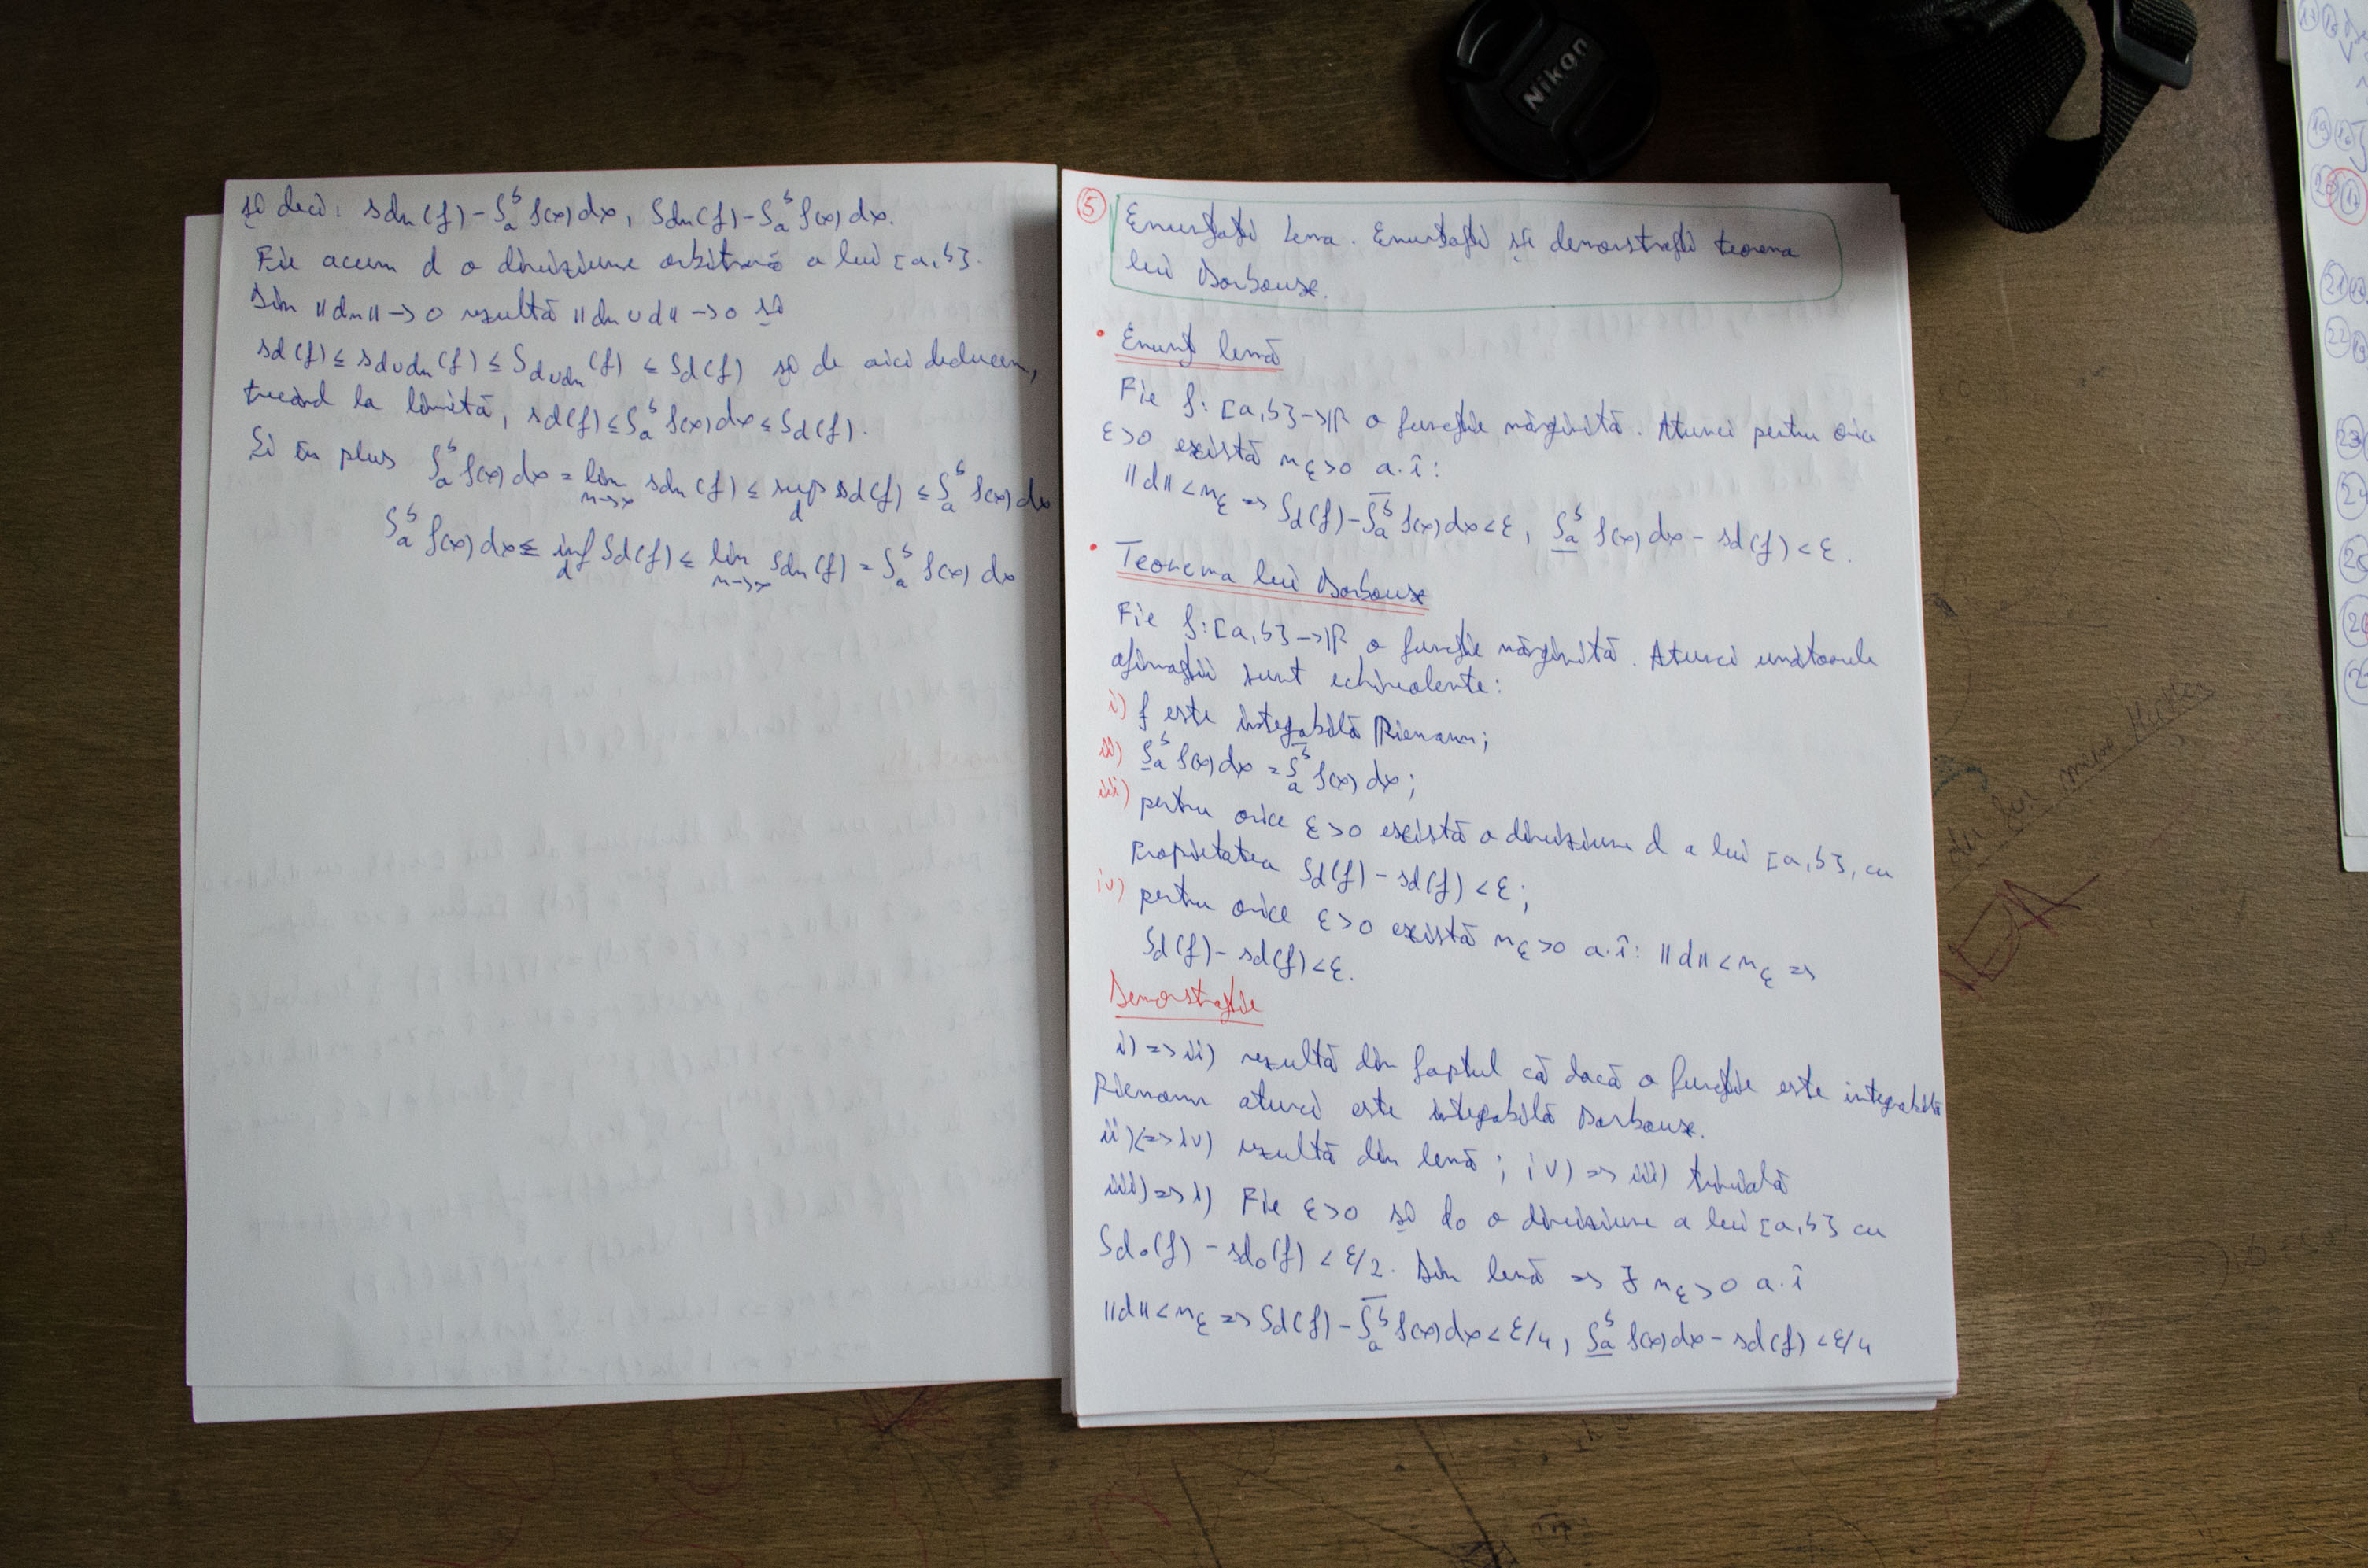 și deci: sdn(f) - ∫ₐᵇ f(x)dx, Sdn(f) - ∫ₐᵇ f(x)dx.
Fie acum d o diviziune arbitrară a lui [a,b].
Din ||dn|| -> 0 rezultă ||dn∪d|| -> 0 și
sd(f) ≤ sd∪dn(f) ≤ Sd∪dn(f) ≤ Sd(f) și de aici deducem,
trecând la limită, sd(f) ≤ ∫ₐᵇ f(x)dx ≤ Sd(f).
Și în plus ∫ₐᵇ f(x)dx = lim n->∞ sdn(f) ≤ sup d sd(f) ≤ ∫ₐᵇ f(x)dx
∫ₐᵇ f(x)dx ≤ inf d Sd(f) ≤ lim n->∞ Sdn(f) = ∫ₐᵇ f(x)dx
Nikon
5 Enunțați Lema. Enunțați și demonstrați teorema
lui Darboux.
• Enunț lemă
Fie f: [a,b] -> ℝ o funcție mărginită. Atunci pentru orice
ε>0 există nε>0 a.î:
||d|| < nε => Sd(f) - ∫̅ₐᵇ f(x)dx < ε, ∫̲ₐᵇ f(x)dx - sd(f) < ε.
• Teorema lui Darboux
Fie f: [a,b] -> ℝ o funcție mărginită. Atunci următoarele
afirmații sunt echivalente:
i) f este integrabilă Riemann;
ii) ∫̲ₐᵇ f(x)dx = ∫̅ₐᵇ f(x)dx;
iii) pentru orice ε>0 există o diviziune d a lui [a,b], cu
proprietatea Sd(f) - sd(f) < ε;
iv) pentru orice ε>0 există nε>0 a.î: ||d|| < nε =>
Sd(f) - sd(f) < ε.
Demonstrație
i) => ii) rezultă din faptul că dacă o funcție este integrabilă
Riemann atunci este integrabilă Darboux.
ii) (=> iv) rezultă din lemă; iv) => iii) trivială
iii) => i) Fie ε>0 și d₀ o diviziune a lui [a,b] cu
Sd₀(f) - sd₀(f) < ε/2. Din lemă => ∃ nε>0 a.î
||d|| < nε => Sd(f) - ∫̅ₐᵇ f(x)dx < ε/4, ∫̲ₐᵇ f(x)dx - sd(f) < ε/4